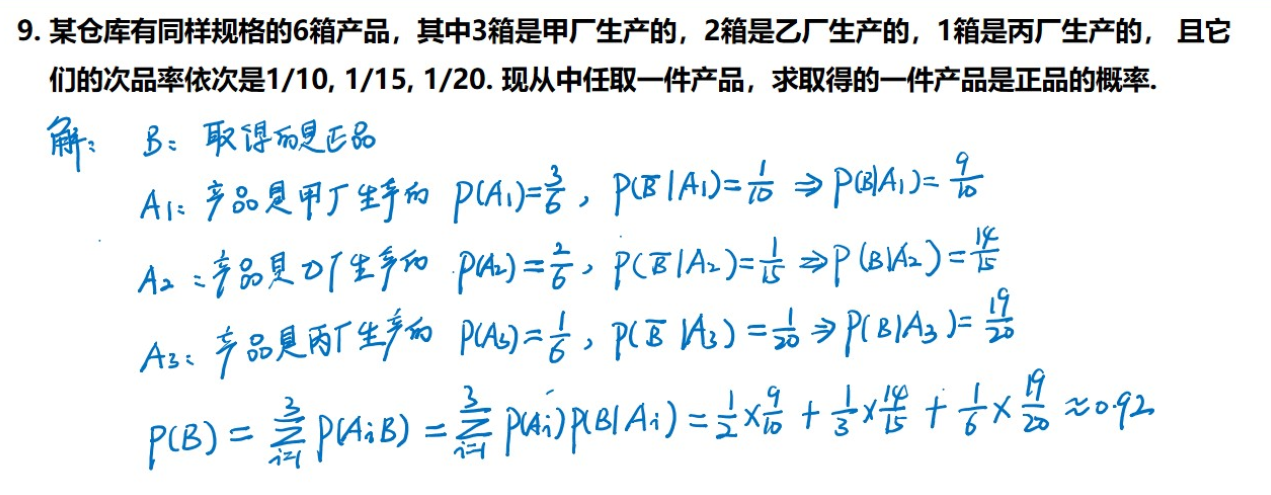 9. 某仓库有同样规格的6箱产品，其中3箱是甲厂生产的，2箱是乙厂生产的，1箱是丙厂生产的， 且它
们的次品率依次是1/10, 1/15, 1/20. 现从中任取一件产品，求取得的一件产品是正品的概率.
解： B： 取得的是正品
A₁：产品是甲厂生产的 P(A₁)=3/6，P(B̅|A₁)=1/10 ⇒ P(B|A₁)=9/10
A₂：产品是乙厂生产的 P(A₂)=2/6，P(B̅|A₂)=1/15 ⇒ P(B|A₂)=14/15
A₃：产品是丙厂生产的 P(A₃)=1/6，P(B̅|A₃)=1/20 ⇒ P(B|A₃)=19/20
P(B)=∑_{i=1}^{3} P(AᵢB)=∑_{i=1}^{3} P(Aᵢ)P(B|Aᵢ)=1/2×9/10+1/3×14/15+1/6×19/20≈0.92